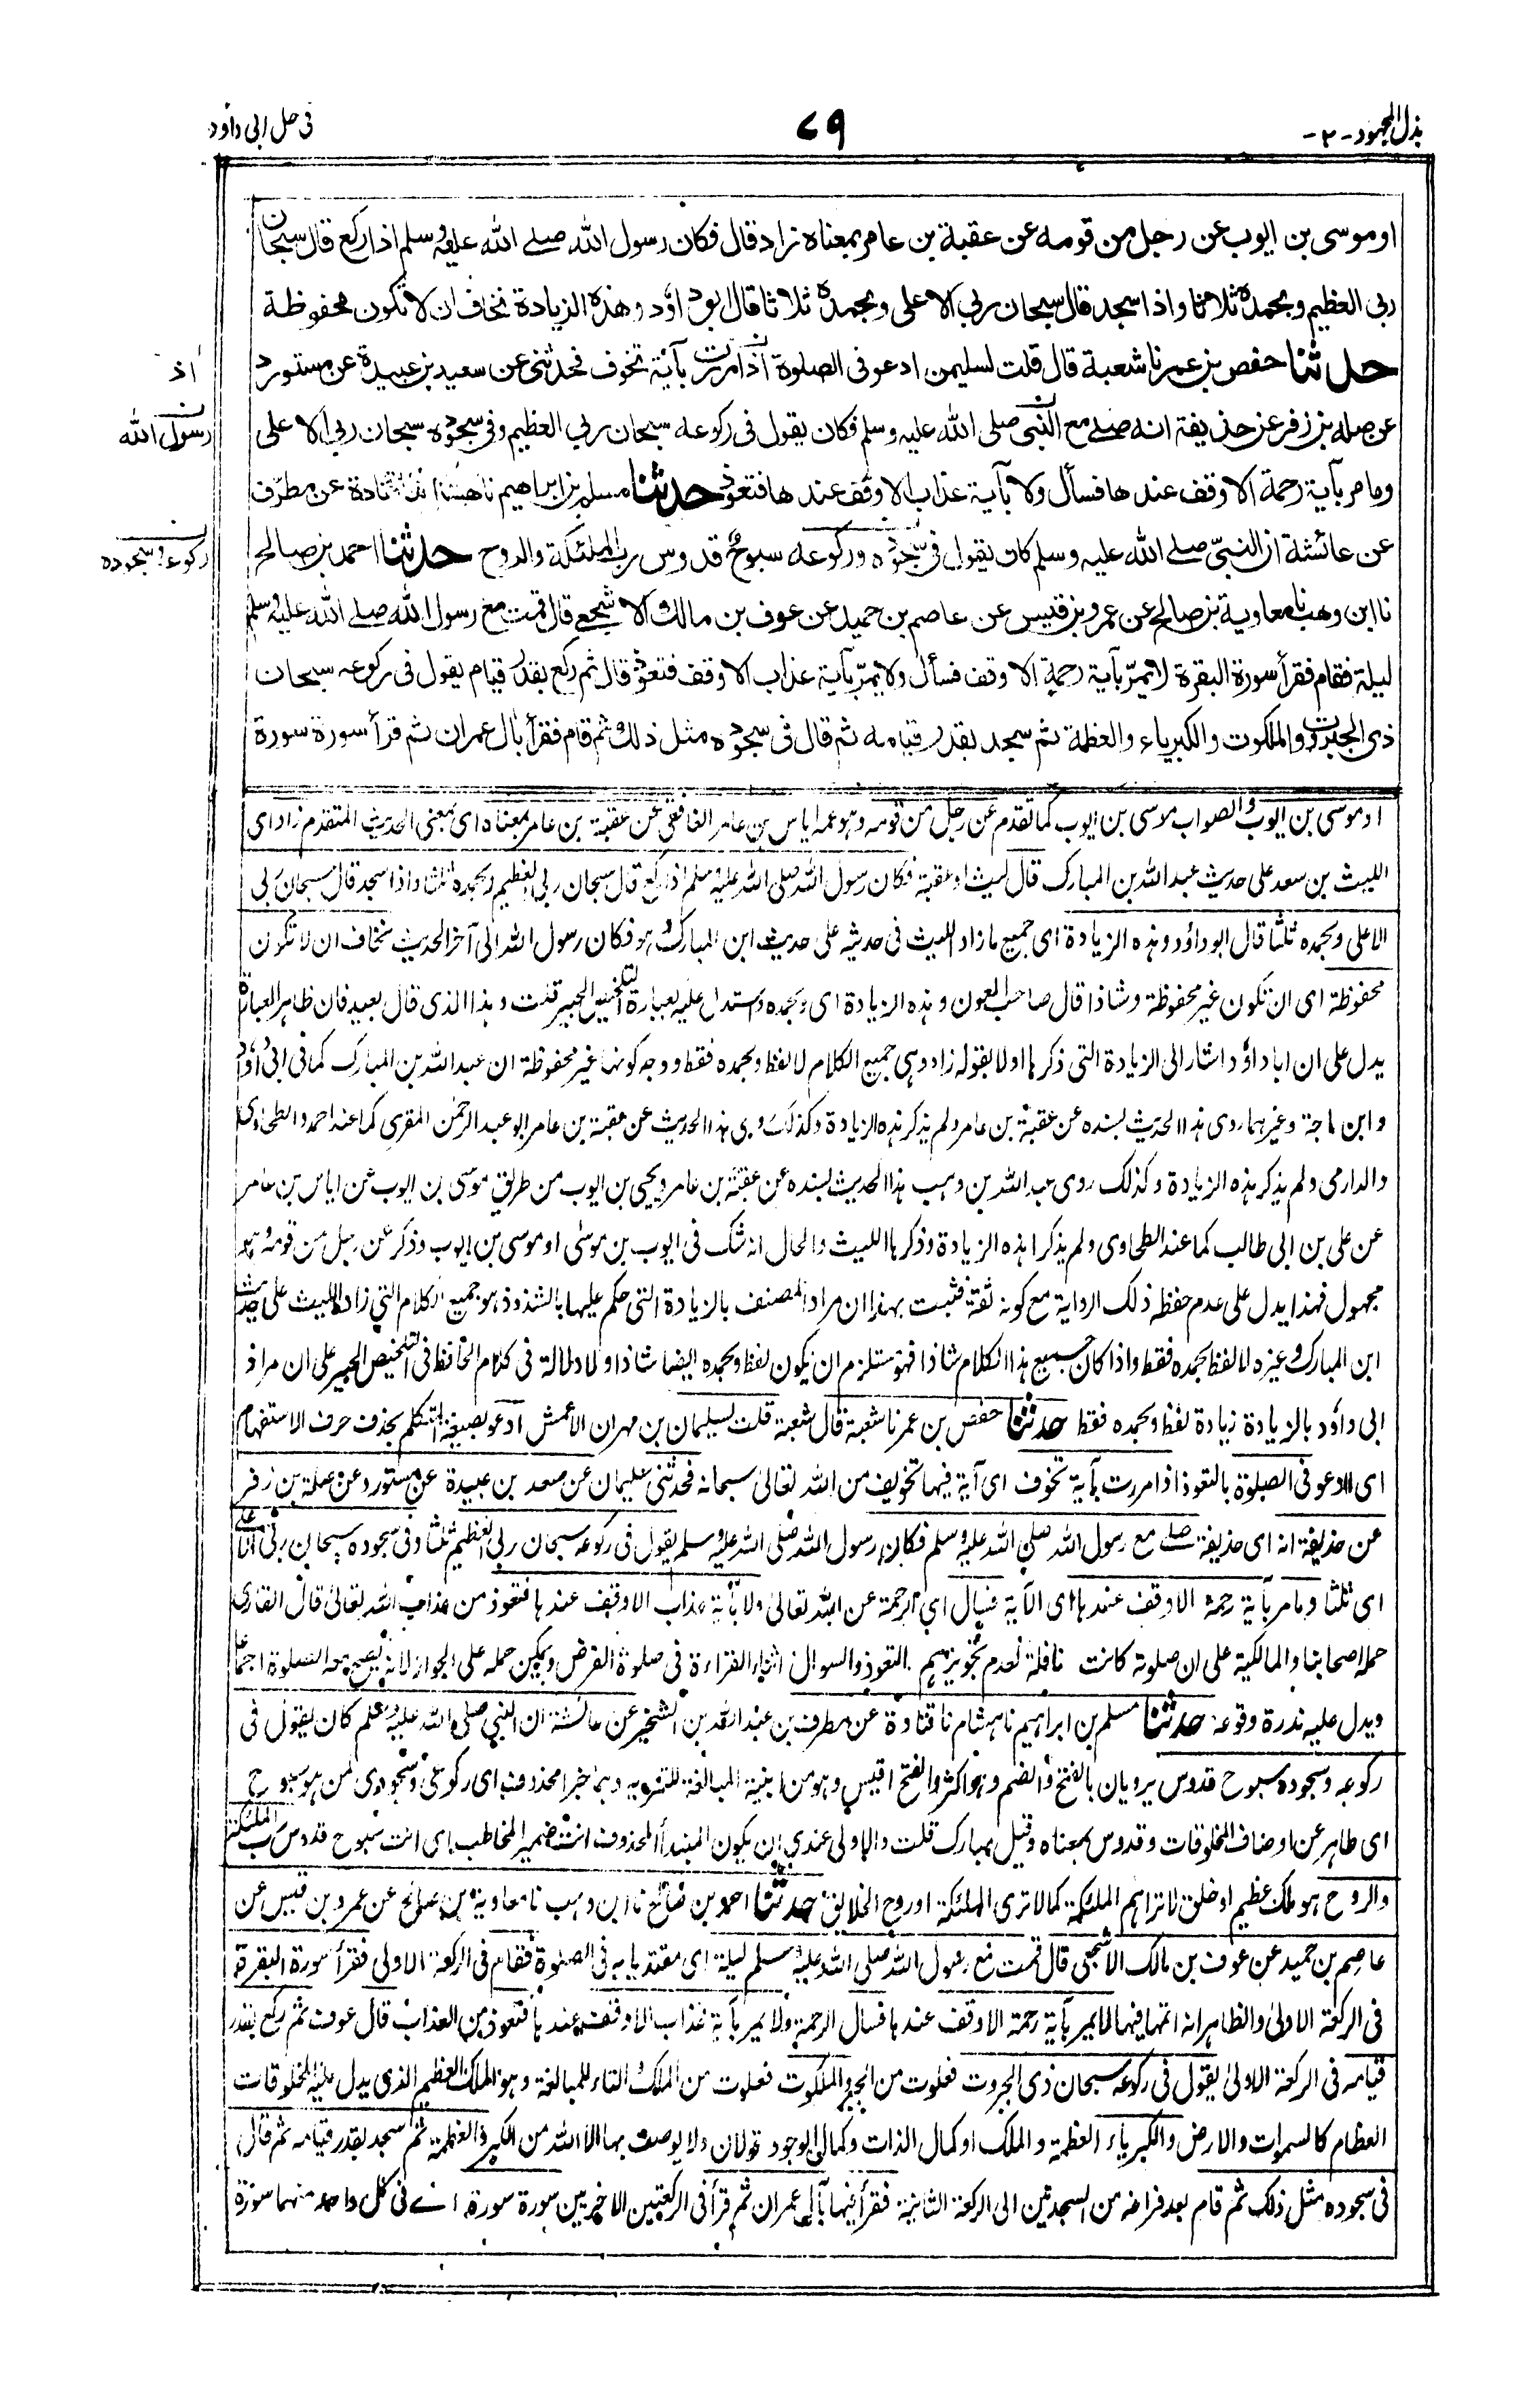 بذل المجهود -٢-
٧٩
فی حل ابی داود
او موسی بن ایوب عن رجل من قومه عن عقبة بن عامر بمعناه زاد قال فکان رسول الله صلے الله علیه وسلم اذا رکع قال سبحان
ربی العظیم وبحمده ثلاثا واذا سجد قال سبحان ربی الاعلی وبحمده ثلاثا قال ابوداؤد وهذه الزیادة نخاف ان لا تکون محفوظة
حدثنا حفص بن عمر نا شعبة قال قلت لسلیمن ادعو فی الصلوة اذا مررت بآیة تخوف فحدثنی عن سعید بن عبیدة عن مستورد
اذ
عن صلة بن زفر عن حذیفة انه صلے مع النبی صلی الله علیه وسلم فکان یقول فی رکوعه سبحان ربی العظیم وفی سجوده سبحان ربی الاعلی
رسول الله
وما مر بآیة رحمة الا وقف عندها فسأل ولا بآیة عذاب الا وقف عندها فتعوذ حدثنا مسلم بن ابراهیم نا هشام نا قتادة عن مطرّف
عن عائشة ان النبیّ صلے الله علیه وسلم کان یقول فی سجوده ورکوعه سبوحٌ قدوس رب الملئکة والروح حدثنا احمد بن صالح
رکوعه وسجوده
نا ابن وهب نا معاویة بن صالح عن عمرو بن قیس عن عاصم بن حمید عن عوف بن مالك الاشجعی قال قمت مع رسول الله صلے الله علیه وسلم
لیلة فقام فقرأ سورة البقرة لا یمرّ بآیة رحمة الا وقف فسأل ولا یمرّ بآیة عذاب الا وقف فتعوذ قال ثم رکع بقدر قیامه یقول فی رکوعه سبحان
ذی الجبروت والملکوت والکبریاء والعظمة ثم سجد بقدر قیامه ثم قال فی سجوده مثل ذلك ثم قام فقرأ بآل عمران ثم قرأ سورة سورة
او موسی بن ایوب والصواب موسی بن ایوب کما تقدم عن رجل من قومه وهو عمه ایاس بن عامر الغافقی عن عقبة بن عامر بمعناه ای بمعنی الحدیث المتقدم زاد ای
اللیث بن سعد علی حدیث عبد الله بن المبارک قال لیث او عقبة فکان رسول الله صلی الله علیه وسلم اذا رکع قال سبحان ربی العظیم وبحمده ثلثا واذا سجد قال سبحان ربی
الاعلی وبحمده ثلثا قال ابو داؤد وهذه الزیادة ای جمیع ما زاد اللیث فی حدیثه علی حدیث ابن المبارک وهو فکان رسول الله الی آخر الحدیث نخاف ان لا تکون
محفوظة ای ان تکون غیر محفوظة وشاذا قال صاحب العون وهذه الزیادة ای وبحمده واستدل علیه بعبارة التلخیص الحبیر قلت وهذا الذی قال بعید فان ظاهر العبارة
یدل علی ان ابا داؤد اشار الی الزیادة التی ذکرها اولا بقوله زاد وهی جمیع الکلام لا لفظ وبحمده فقط ووجه کونها غیر محفوظة ان عبد الله بن المبارک کما فی ابی داؤد
وابن ماجة وغیرهما روی هذا الحدیث بسنده عن عقبة بن عامر ولم یذکر هذه الزیادة وکذلک روی هذا الحدیث عن عقبة بن عامر ابو عبد الرحمن المقری کما عند احمد والطحاوی
والدارمی ولم یذکر هذه الزیادة وکذلک روی عبد الله بن وهب هذا الحدیث بسنده عن عقبة بن عامر ویحیی بن ایوب من طریق موسی بن ایوب عن ایاس بن عامر
عن علی بن ابی طالب کما عند الطحاوی ولم یذکرا هذه الزیادة وذکرها اللیث والحال انه شک فی ایوب بن موسی او موسی بن ایوب وذکر عن رجل من قومه
مجهول فهذا یدل علی عدم حفظه ذلک الروایة مع کونه ثقة فثبت بهذا ان مراد المصنف بالزیادة التی حکم علیها بالشذوذ هو جمیع الکلام التی زاد اللیث علی حدیث
ابن المبارک وغیره لا لفظ بحمده فقط واذا کان جمیع هذا الکلام شاذا فهو مستلزم ان یکون لفظ وبحمده ایضا شاذا ولا دلالة فی کلام الحافظ فی التلخیص الحبیر علی ان مراد
ابی داؤد بالزیادة زیادة لفظ وبحمده فقط حدثنا حفص بن عمر نا شعبة قال شعبة قلت لسلیمان بن مهران الاعمش ادعو بصیغة المتکلم بحذف حرف الاستفهام
ای أادعو فی الصلوة بالتعوذ اذا مررت بآیة تخوف ای آیة فیها تخویف من الله تعالی سبحانه فحدثنی سلیمان عن سعد بن عبیدة عن مستورد عن صلة بن زفر
عن حذیفة انه ای حذیفة صلے مع رسول الله صلی الله علیه وسلم فکان رسول الله صلی الله علیه وسلم یقول فی رکوعه سبحان ربی العظیم ثلثا وفی سجوده سبحان ربی الاعلی
ای ثلثا وما مر بآیة رحمة الا وقف عندها ای الآیة فسأل ای الرحمة عن الله تعالی ولا بآیة عذاب الا وقف عندها فتعوذ من عذاب الله تعالی قال القاری
حمله اصحابنا والمالکیة علی ان صلوته کانت نافلة لعدم تجویزهم التعوذ والسوال اثناء القراءة فی صلوة الفرض ویمکن حمله علی الجواز لانه یصح معه الصلوة اجماعا
ویدل علیه ندرة وقوعه حدثنا مسلم بن ابراهیم نا هشام نا قتادة عن مطرف بن عبد الله بن الشخیر عن عائشة ان النبی صلی الله علیه وسلم کان یقول فی
رکوعه وسجوده سبوح قدوس یرویان بالفتح والضم وهو اکثر والفتح اقیس وهو من ابنیة المبالغة للتنزیه وهما خبرا محذوف ای رکوعی وسجودی لمن هو سبوح
ای طاهر عن اوصاف المخلوقات وقدوس بمعناه وقیل مبارک قلت والاولی عندی ان یکون المبتدأ المحذوف انت ضمیر المخاطب ای انت سبوح قدوس رب الملئکة
والروح هو ملک عظیم او خلق لا تراهم الملئکة کما لا تری الملئکة او روح الخلایق حدثنا احمد بن صالح نا ابن وهب نا معاویة بن صالح عن عمرو بن قیس عن
عاصم بن حمید عن عوف بن مالک الاشجعی قال قمت مع رسول الله صلی الله علیه وسلم لیلة ای مقتدیا به فی الصلوة فقام فی الرکعة الاولی فقرأ سورة البقرة
فی الرکعة الاولی والظاهر انه اتمها فیها لا یمر بآیة رحمة الا وقف عندها فسال الرحمة ولا یمر بآیة عذاب الا وقف عندها فتعوذ من العذاب قال عوف ثم رکع بقدر
قیامه فی الرکعة الاولی یقول فی رکوعه سبحان ذی الجبروت فعلوت من الجبر والملکوت فعلوت من الملک التاء للمبالغة وهو الملک العظیم الذی یدل علیه المخلوقات
العظام کالسموات والارض والکبریاء العظمة والملک او کمال الذات وکمال الوجود قولان ولا یوصف بها الا الله من الکبر والعظمة ثم سجد بقدر قیامه ثم قال
فی سجوده مثل ذلک ثم قام بعد فراغه من السجدتین الی الرکعة الثانیة فقرأ فیها بآل عمران ثم قرأ فی الرکعتین الاخریین سورة سورة اے فی کل واحد منهما سورة